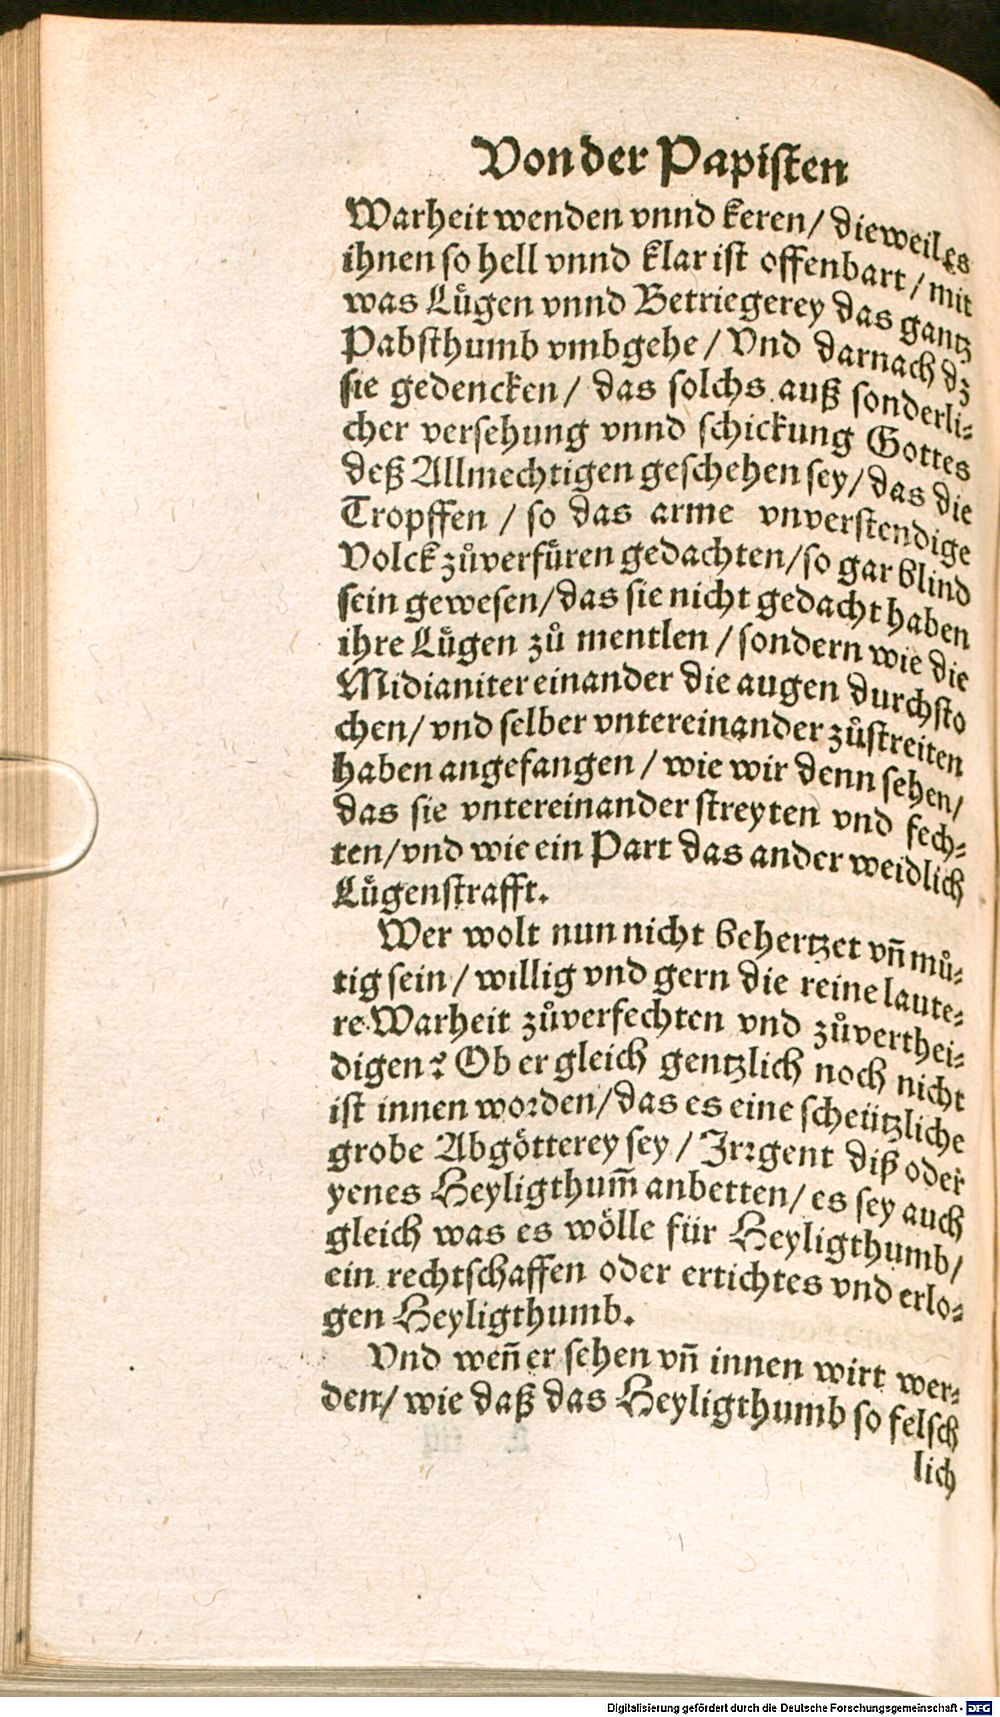 Von der Papisten
Warheit wenden vnnd keren / dieweil es
ihnen so hell vnnd klar ist offenbart / mit
was Lügen vnnd Betriegerey das gantz
Pabsthumb vmbgehe / Vnd darnach dz
sie gedencken / das solchs auß sonderli-
cher versehung vnnd schickung Gottes
deß Allmechtigen geschehen sey / das die
Tropffen / so das arme vnverstendige
Volck zůverfüren gedachten / so gar blind
sein gewesen / das sie nicht gedacht haben
ihre Lügen zů mentlen / sondern wie die
Midianiter einander die augen durchsto
chen / vnd selber vntereinander zůstreiten
haben angefangen / wie wir denn sehen /
das sie vntereinander streyten vnd fech-
ten / vnd wie ein Part das ander weidlich
Lügenstrafft.
Wer wolt nun nicht behertzet vñ mů-
tig sein / willig vnd gern die reine laute-
re Warheit zůverfechten vnd zůverthei-
digen? Ob er gleich gentzlich noch nicht
ist innen worden / das es eine scheützliche
grobe Abgötterey sey / Irrgent diß oder
yenes Heyligthum̃ anbetten / es sey auch
gleich was es wölle für Heyligthumb /
ein rechtschaffen oder ertichtes vnd erlo-
gen Heyligthumb.
Vnd weñ er sehen vñ innen wirt wer-
den / wie daß das Heyligthumb so felsch
lich
Digitalisierung gefördert durch die Deutsche Forschungsgemeinschaft - DFG